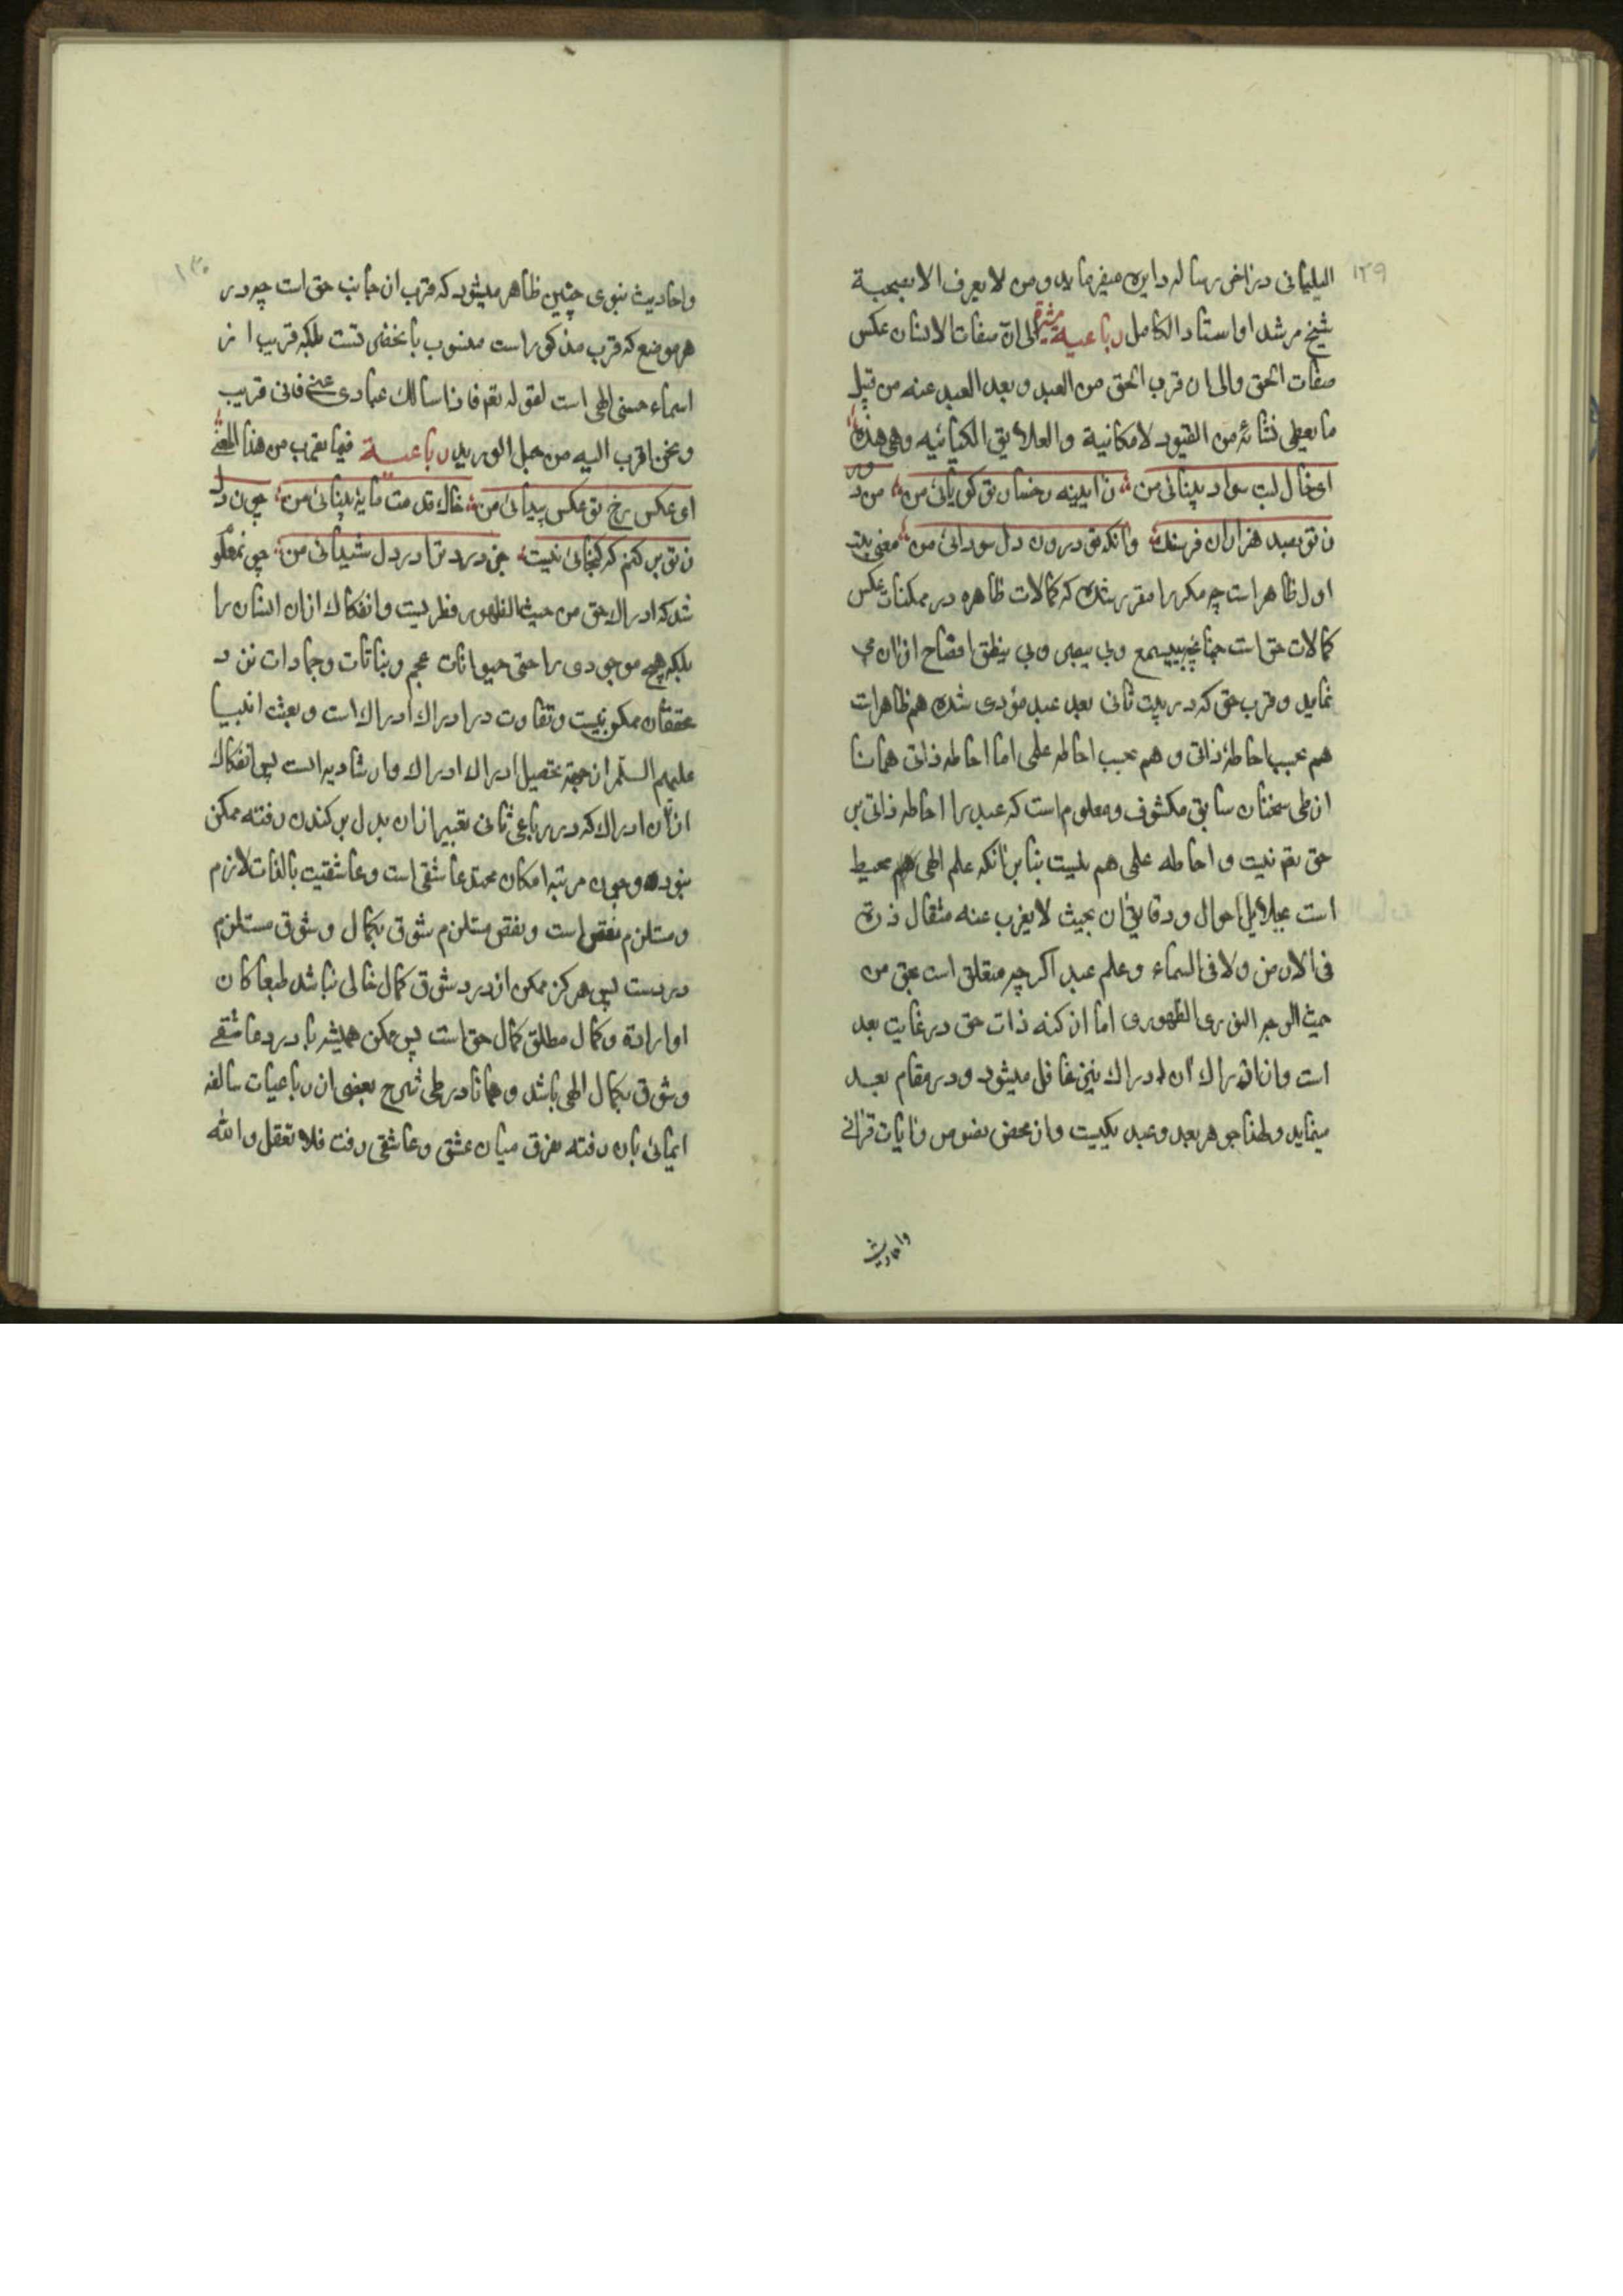 ١٢٩
البلیانی در آخر رساله دایره میفرماید و من لا یعرف الا بصحبة
شیخ مرشد او استاد الکامل رباعیة مشیرة الی ان صفات الانسان عکس
صفات الحق والی ان قرب الحق من العبد و بعد العبد عنه من قبل
ما یعطی نشائه من القیود الامکانیة والعلایق الکیانیه وهی هذه
ای خال لبت سواد بینائی من زایینه رخسار تو کویائی من من دور
ز تو بصد هزاران فرسنک وانکه تو درون دل سودائی من معنی بیت
اول ظاهر است چه مکررا مقرر شده که کمالات ظاهره در ممکنات عکس
کمالات حق است چنانچه بی یسمع وبی یبصر وبی ینطق افصاح ازان می
نماید و قرب حق که در بیت ثانی بعد عبد مؤدی شده هم ظاهرات
هم بحسب احاطهٔ ذاتی و هم بحسب احاطه علمی اما احاطه ذاتی همانا
از طی سخنان سابق مکشوف و معلوم است که عبد را احاطه ذاتی بر
حق تع نیست و احاطه علمی هم نیست بنا برانکه علم الهی هم محیط
است بجلایل احوال و دقایق ان بحیث لا یغرب عنه مثقال ذرة
فی الارض ولا فی السماء و علم عبد اکر چه متعلق است بحق من
حیث الوجه النوری الظهوری اما از کنه ذات حق در غایت بعد
است و از ادراک ان ادراک نیز غافل میشود و در مقام بعد
مینماید و لهذا جوهر بعد و عبد یکیست و از محض نصوص و ایات قرانی
واحادیث
١٣٠
واحادیث نبوی چنین ظاهر میشود که قرب از جانب حق است چه در
هر موضع که قرب مذکور است منسوب بانحضرتست بلکه قریب از
اسماء حسنی الهی است لقوله تع فاذا سالک عبادی عنی فانی قریب
و نحن اقرب الیه من حبل الورید رباعیة فیما یقرب من هذا المعنی
ای عکس رخ تو عکس پیدائی من خاک قدمت مایه بینائی من چون دل
ز تو بر کنم که کنجائی نیست جز درد تو در دل شیدائی من چو نمعلو
شد که ادراک حق من حیث الظهور فطریست و انفکاک ازان انسان را
بلکه هیچ موجودی را حتی حیوانات عجم و نباتات و جمادات نزد
محققان ممکن نیست و تفاوت در ادراک ادراک است و بعث انبیا
علیهم السلم از جهة تحصیل ادراک ادراک و ارشاد بدانست پس انفکاک
از ان ادراک که در رباعی ثانی تعبیر ازان بدل بر کندن رفته ممکن
نبود و چون مرتبه امکان محتد عاشقی است و عاشقیت بالذات لازم
و مستلزم نقص است و نقص مستلزم شوق بکمال و شوق مستلزم
دردست پس هرکز ممکن از درد شوق کمال خالی نباشد طبعا کان
او ارادة و کمال مطلق کمال حق است پس ممکن همیشه با درد عاشقی
و شوق بکمال الهی باشد و همانا در طی شرح بعضی از رباعیات سالفه
ایمائی بان رفته بفرق میان عشق و عاشقی رفت فلا تعقل والله